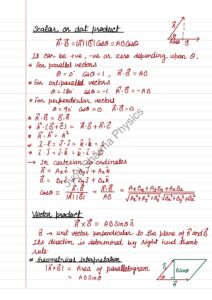 Scalar or dot product
A⃗·B⃗ = |A⃗||B⃗| Cosθ = AB Cosθ
It can be +ve, -ve or zero depending upon θ.
* For parallel vectors
θ = 0° Cosθ = 1, A⃗·B⃗ = AB
* For antiparallel vectors
θ = 180° Cosθ = -1 A⃗·B⃗ = -AB
* For perpendicular vectors
θ = 90° Cosθ = 0 A⃗·B⃗ = 0
* A⃗·B⃗ = B⃗·A⃗
* A⃗·(B⃗+C⃗) = A⃗·B⃗ + A⃗·C⃗
* A⃗·A⃗ = A²
→ In cartesian co ordinates
Cosθ = A⃗·B⃗ / |A⃗||B⃗| = A⃗·B⃗ / AB
Vector product
A⃗×B⃗ = AB Sinθ n̂
n̂ → unit vector perpendicular to the plane of A⃗ and B⃗
Its direction is determined by right hand thumb
rule
* Geometrical interpretation
|A⃗×B⃗| = Area of parallelogram
= AB Sinθ
B Sinθ
Physics